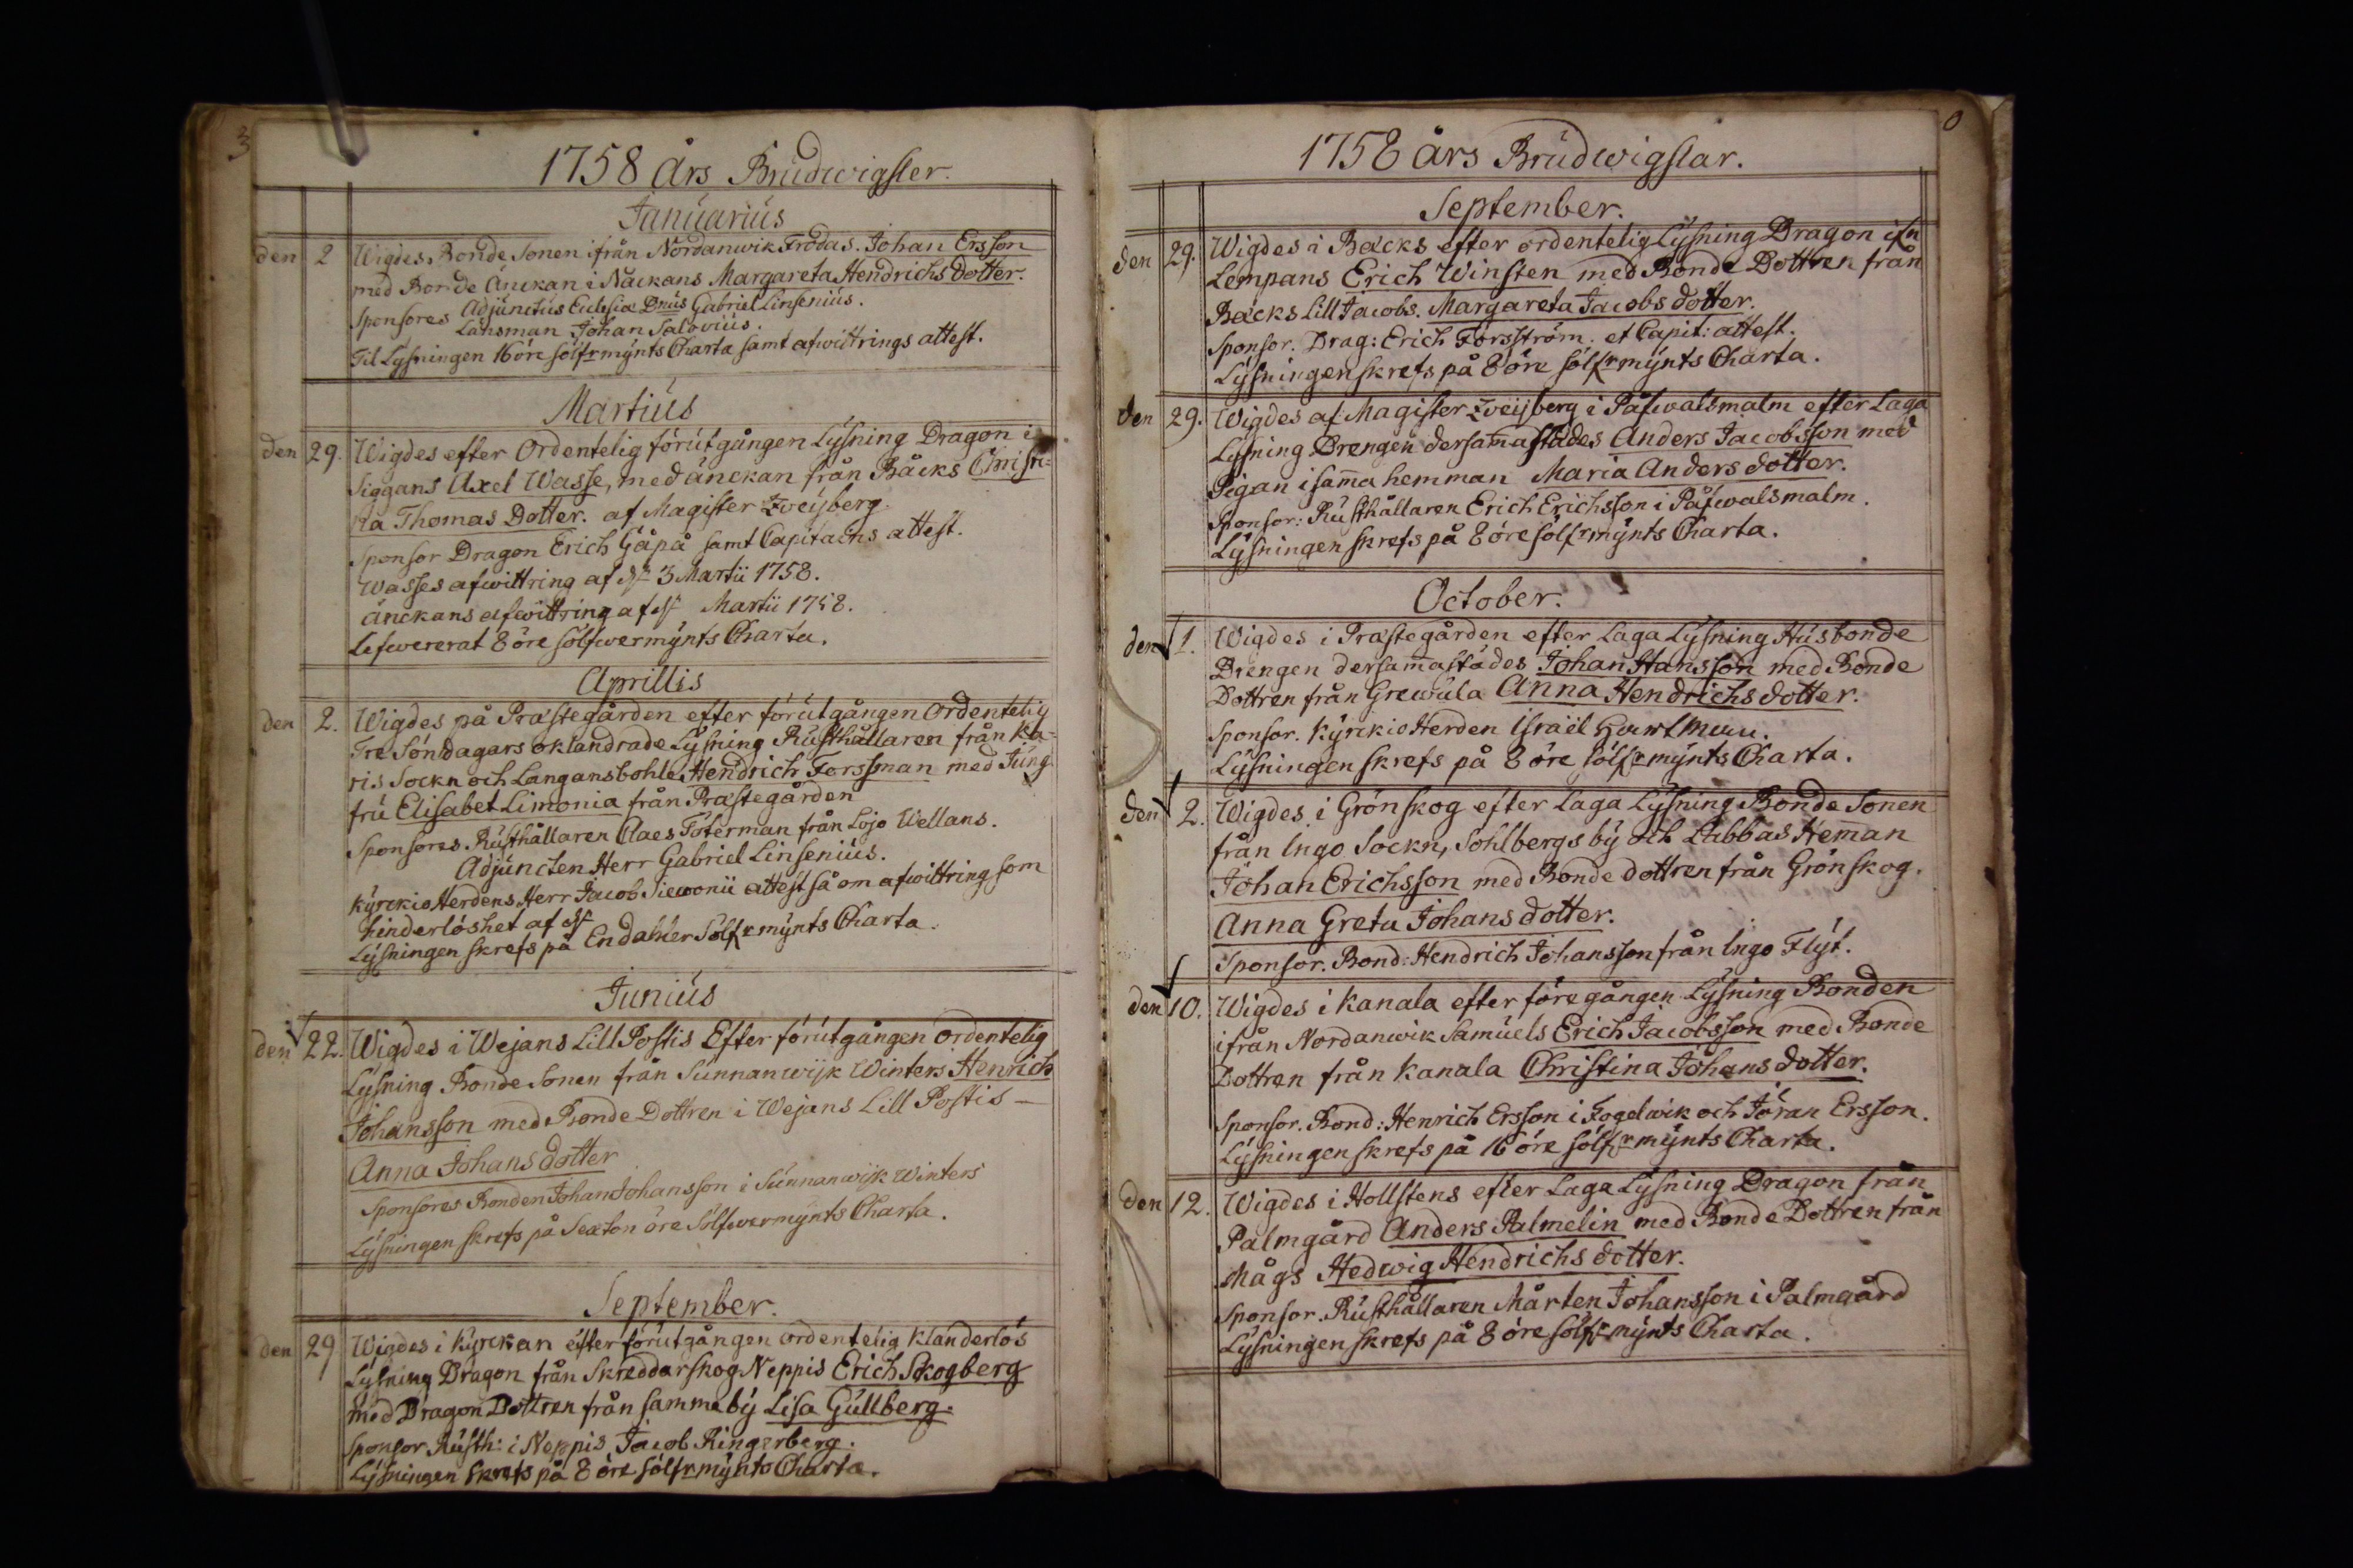 3
1758 Års Brudwigsler.
Januarius
den 2 Wigdes Bonde Sonen ifrån Nordanwik Frodas. Johan Ersson
med Bonde Änckan i Näckans Margareta Hendrichs Dotter.
Sponsores Adjunctus Eclesiæ Dnus Gabriel Linsenius.
Länsman Johan Salovius.
Til Lysningen 16 öre sölfr mynts Charta samt afwittrings attest.
Martius
den 29. Wigdes efter Ordentelig förutgången Lysning Dragon i
Siggans Axel Wasse, med änckan från Bäcks Chris-
ta Thomas Dotter. af Magister Zweijberg.
Sponsor Dragon Erich Gåpå samt Capitains attest.
Wasses afwittring af d. 3 Martii 1758.
änckans afwittring af d. Martii 1758.
Lefwererat 8 öre sölfwermynts Charta.
Aprillis
den 2. Wigdes på Præstegården efter förutgången Ordentelig
Tre Söndagars oklandrade Lysning Rusthållaren från Ka-
ris Sockn och Langansbohle Hendrich Forssman med Jung-
fru Elisabet Limonia från Præstegården
Sponsores. Rusthållaren Claes Töterman från Lojo Wellans.
Adjuncten Herr Gabriel Linsenius.
Kyrckio Herdens Herr Jacob Siewonii attest så om afwittring som
hinderlöshet af d.
Lysningen skrefs på En daler Sölfr mynts Charta.
Junius
den 22. Wigdes i Wejans Lill Postis Efter förutgången ordentelig
Lysning Bonde Sonen från Sunnanwijk Winters Henrich
Johansson med Bonde Dottren i Wejans Lill Postis –
Anna Johans dotter
Sponsores Bonden Johan Johansson i Sunnanwijk Winters
Lysningen skrefs på Sexton öre Sölfwermynts Charta.
September.
den 29 Wigdes i Kyrckan efter förutgången ordentelig klanderlös
Lysning Dragon från Skreddarskog Neppis Erich Skogberg
med Dragon Dottren från samma by Lisa Gullberg.
Sponsor Rusth: i Neppis Jacob Ringerberg.
Lysningen skrefs på 8 öre sölfr mynts Charta.
0
1758 års Brudwigslar.
September.
den 29. Wigdes i Bäcks efter ordentelig Lysning Dragon ifn
Lempans Erich Winsten med Bonde Dottren från
Bäcks Lill Jacobs. Margareta Jacobs dotter.
Sponsor. Drag: Erich Forsström. et Capit: attest.
Lysningen skrefs på 8 öre sölfr mynts Charta.
den 29. Wigdes af Magister Zweijberg i Påfwalsmalm efter Laga
Lysning Drengen dersam̄astädes Anders Jacobsson med
Pigan i sam̄a hemman Maria Anders dotter.
Sponsor: Rusthållaren Erich Erichsson i Påfwalsmalm.
Lysningen skrefs på 8 öre sölfr mynts Charta.
October.
den 1. Wigdes i Præstegården efter Laga Lysning Husbonde
Drengen dersam̄astädes Johan Hansson med Bonde
Dottren från Grewula Anna Hendrichs dotter.
Sponsor. Kyrckio Herden Israël Hartman.
Lysningen skrefs på 8 öre sölfr mynts Charta.
den 2. Wigdes i Grönskog efter Laga Lysning Bonde Sonen
från Ingo Sockn, Sohlbergs by och Labbas Heman
Johan Erichsson med Bonde dottren från Grönskog.
Anna Greta Johans dotter.
Sponsor. Bond: Hendrich Johansson från Ingo Flyt.
den 10. Wigdes i Kanala efter föregången Lysning Bonden
ifrån Nordanwik Samuels Erich Jacobsson med Bonde
Dottren från Kanala Christina Johans dotter.
Sponsor. Bond: Henrich Ersson i Fogelwik och Jöran Ersson.
Lysningen skrefs på 16 öre sölfr mynts Charta.
den 12. Wigdes i Hollstens efter Laga Lysning Dragon från
Palmgård Anders Palmelin med Bonde Dottren från
Mågs Hedwig Hendrichs dotter.
Sponsor. Rusthållaren Mårten Johansson i Palmgård
Lysningen skrefs på 8 öre sölfr mynts Charta.